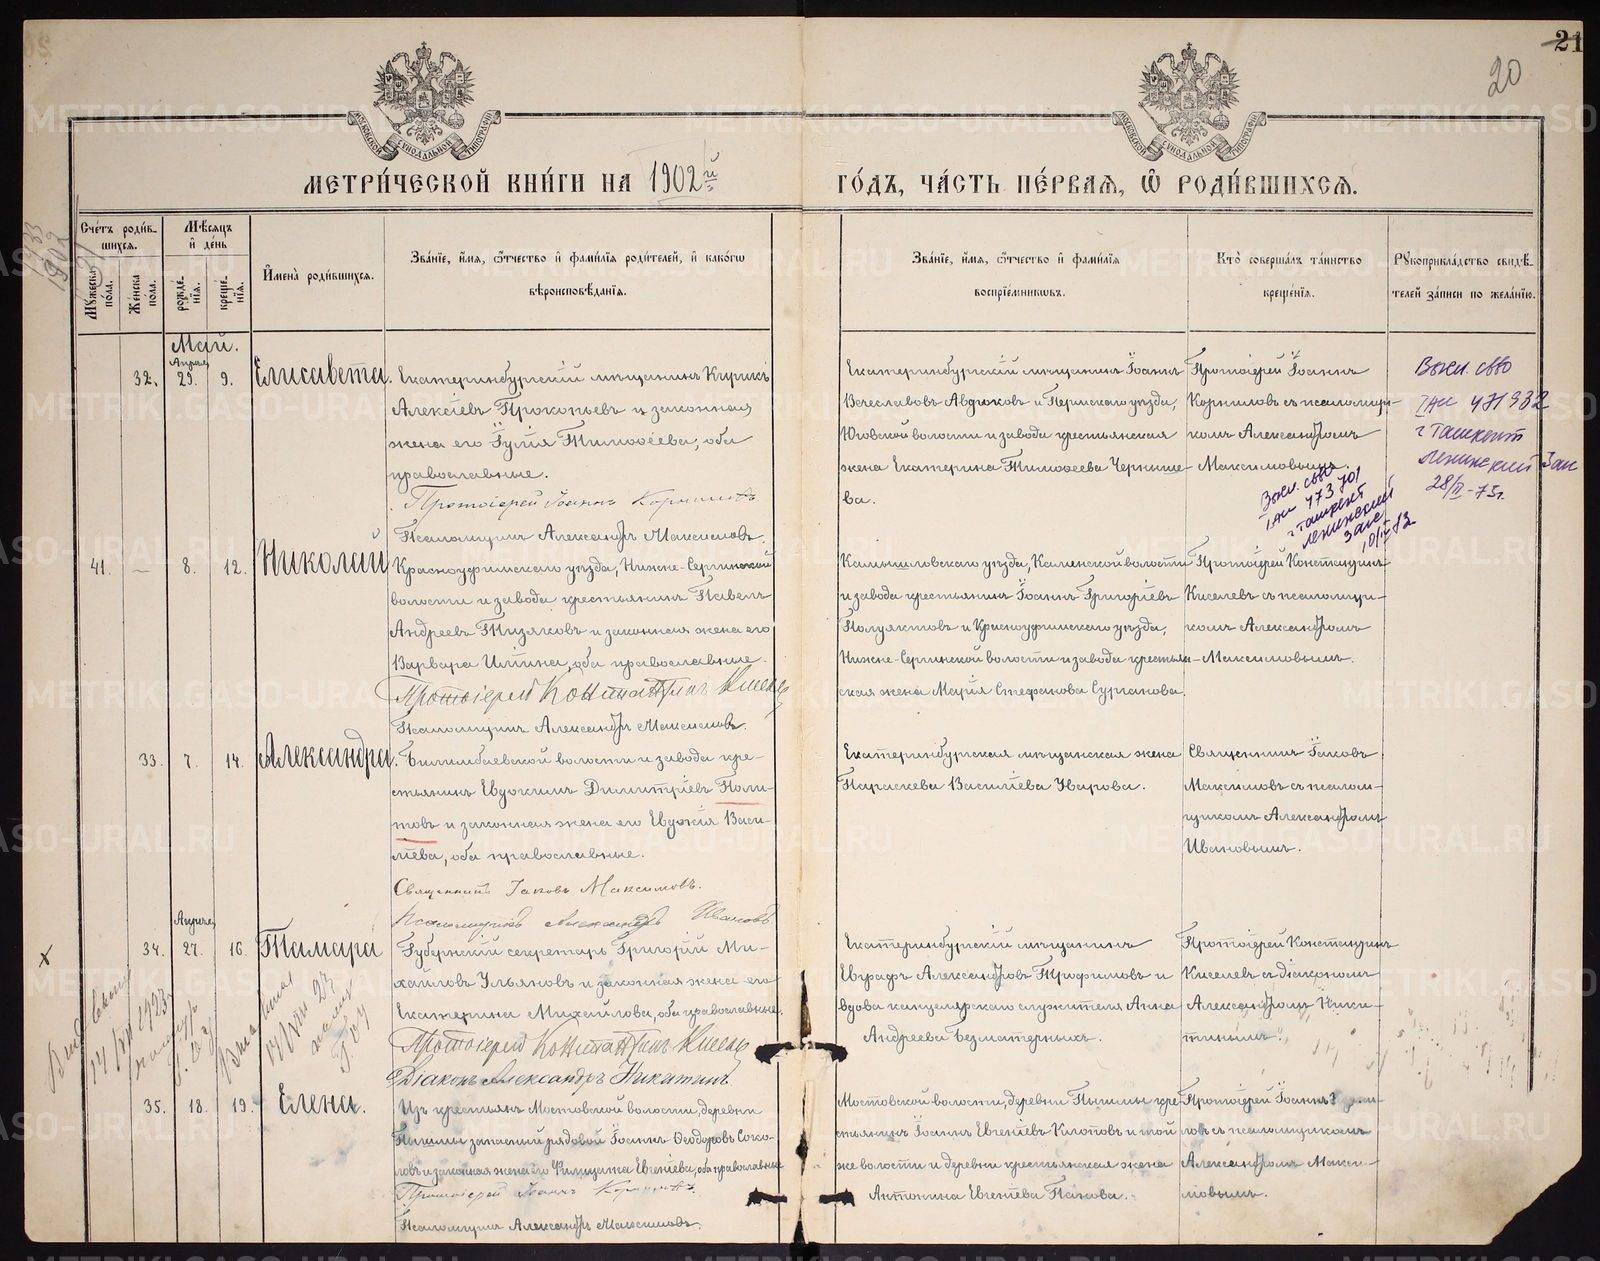 21
20
МОСКОВСКОЙ СѴНОДАЛЬНОЙ ТИПОГРАФІИ
МОСКОВСКОЙ СѴНОДАЛЬНОЙ ТИПОГРАФІИ
МЕТРИ́ЧЕСКОЙ КНИ́ГИ НА 1902й
ГО́ДЪ, ЧА́СТЬ ПЕ́РВАѦ, Ѡ҆ РОДИ́ВШИХСѦ.
1902
Сче́тъ роди́в-
шихсѧ.
Мꙋ́жеска по́ла.
Же́нска по́ла.
Мѣ́сѧцъ
и҆ де́нь
рожде́-
нїѧ.
креще́-
нїѧ.
И҆мена̀ роди́вшихсѧ.
Зва́нїе, и҆́мѧ, ѻ҆́тчество и҆ фами́лїѧ роди́телей, и҆ како́гѡ
вѣроисповѣ́данїѧ.
Зва́нїе, и҆́мѧ, ѻ҆́тчество и҆ фами́лїѧ
воспрїе́мникѡвъ.
Кто̀ соверша́лъ та́инство
креще́нїѧ.
Рꙋкоприкла́дство свидѣ́-
телей за́писи по жела́нїю.
Май.
Апрѣль
32. 29. 9. Елисавета.
Екатеринбургскій мѣщанинъ Кирикъ
Алексіевъ Прокопьевъ и законная
жена его Іулія Тимоѳеева, оба
православные.
Протоіерей Іоаннъ Корниловъ
Псаломщикъ Александръ Максимовъ.
Екатеринбургскій мѣщанинъ Іоаннъ
Вячеславовъ Авдюковъ и Пермскаго уѣзда,
Юговской волости и завода крестьянская
жена Екатерина Тимоѳеева Черныше-
ва.
Протоіерей Іоаннъ
Корниловъ съ псаломщи-
комъ Александромъ
Максимовымъ.
Выд. св-во
IАИ 471932
г Ташкент
Ленинский Загс
28/II-73г.
Выд. св-во
IАИ 473701
г Ташкент
Ленинский
Загс
41. — 8. 12. Николай
Красноуфимскаго уѣзда, Нижне-Сергинской
волости и завода крестьянинъ Павелъ
Андреевъ Тизяковъ и законная жена его
Варвара Ильина, оба православные.
Протоіерей Константинъ Киселевъ
Псаломщикъ Александръ Максимовъ.
Камышловскаго уѣзда, Каменской волости
и завода крестьянинъ Іоаннъ Григоріевъ
Полуяктовъ и Красноуфимскаго уѣзда,
Нижне-Сергинской волости и завода крестьян-
ская жена Марія Стефанова Сурганова.
Протоіерей Константинъ
Киселевъ съ псаломщи-
комъ Александромъ
Максимовымъ.
33. 7. 14. Александра.
Билимбаевской волости и завода кре-
стьянинъ Евдокимъ Димитріевъ Поли-
товъ и законная жена его Евдокія Васи-
ліева, оба православные.
Священникъ Іаковъ Максимовъ.
Псаломщикъ Александръ Ивановъ
Екатеринбургская мѣщанская жена
Параскева Василіева Уварова.
Священникъ Іаковъ
Максимовъ съ псалом-
щикомъ Александромъ
Ивановымъ.
Апрѣль
34. 27. 16. Тамара
Губернскій секретарь Григорій Ми-
хайловъ Ульяновъ и законная жена его
Екатерина Михайлова, оба православные.
Протоіерей Константинъ Киселевъ
Діаконъ Александръ Никитинъ.
Екатеринбургскій мѣщанинъ
Евграфъ Александровъ Трофимовъ и
вдова канцелярскаго служителя Анна
Андреева Безматерныхъ.
Протоіерей Константинъ
Киселевъ съ діакономъ
Александромъ Ники-
тинымъ.
35. 18. 19. Елена.
Изъ крестьянъ Мостовской волости, деревни
Пышмы запасный рядовой Іоаннъ Ѳеодоровъ Соко-
ловъ и законная жена его Филицата Евгеніева, оба православные
Протоіерей Іоаннъ Корниловъ.
Псаломщикъ Александръ Максимовъ.
Мостовской волости, деревни Пышмы кре-
стьянинъ Іоаннъ Евгеніевъ Клоповъ и той
же волости и деревни крестьянская жена
Антонина Евгеніева Панова.
Протоіерей Іоаннъ
ловъ съ псаломщикомъ
Александромъ Макси-
мовымъ.